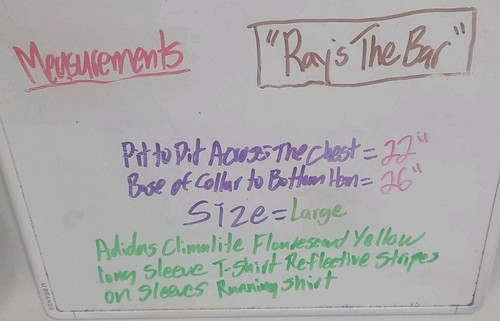 Measurements
"Ray's The Bar"
Pit to Pit Across The Chest = 22"
Base of Collar to Bottom Hem = 26"
Size = Large
Adidas Climalite Flourescent Yellow
long Sleeve T-Shirt Reflective Stripes
on Sleeves Running Shirt